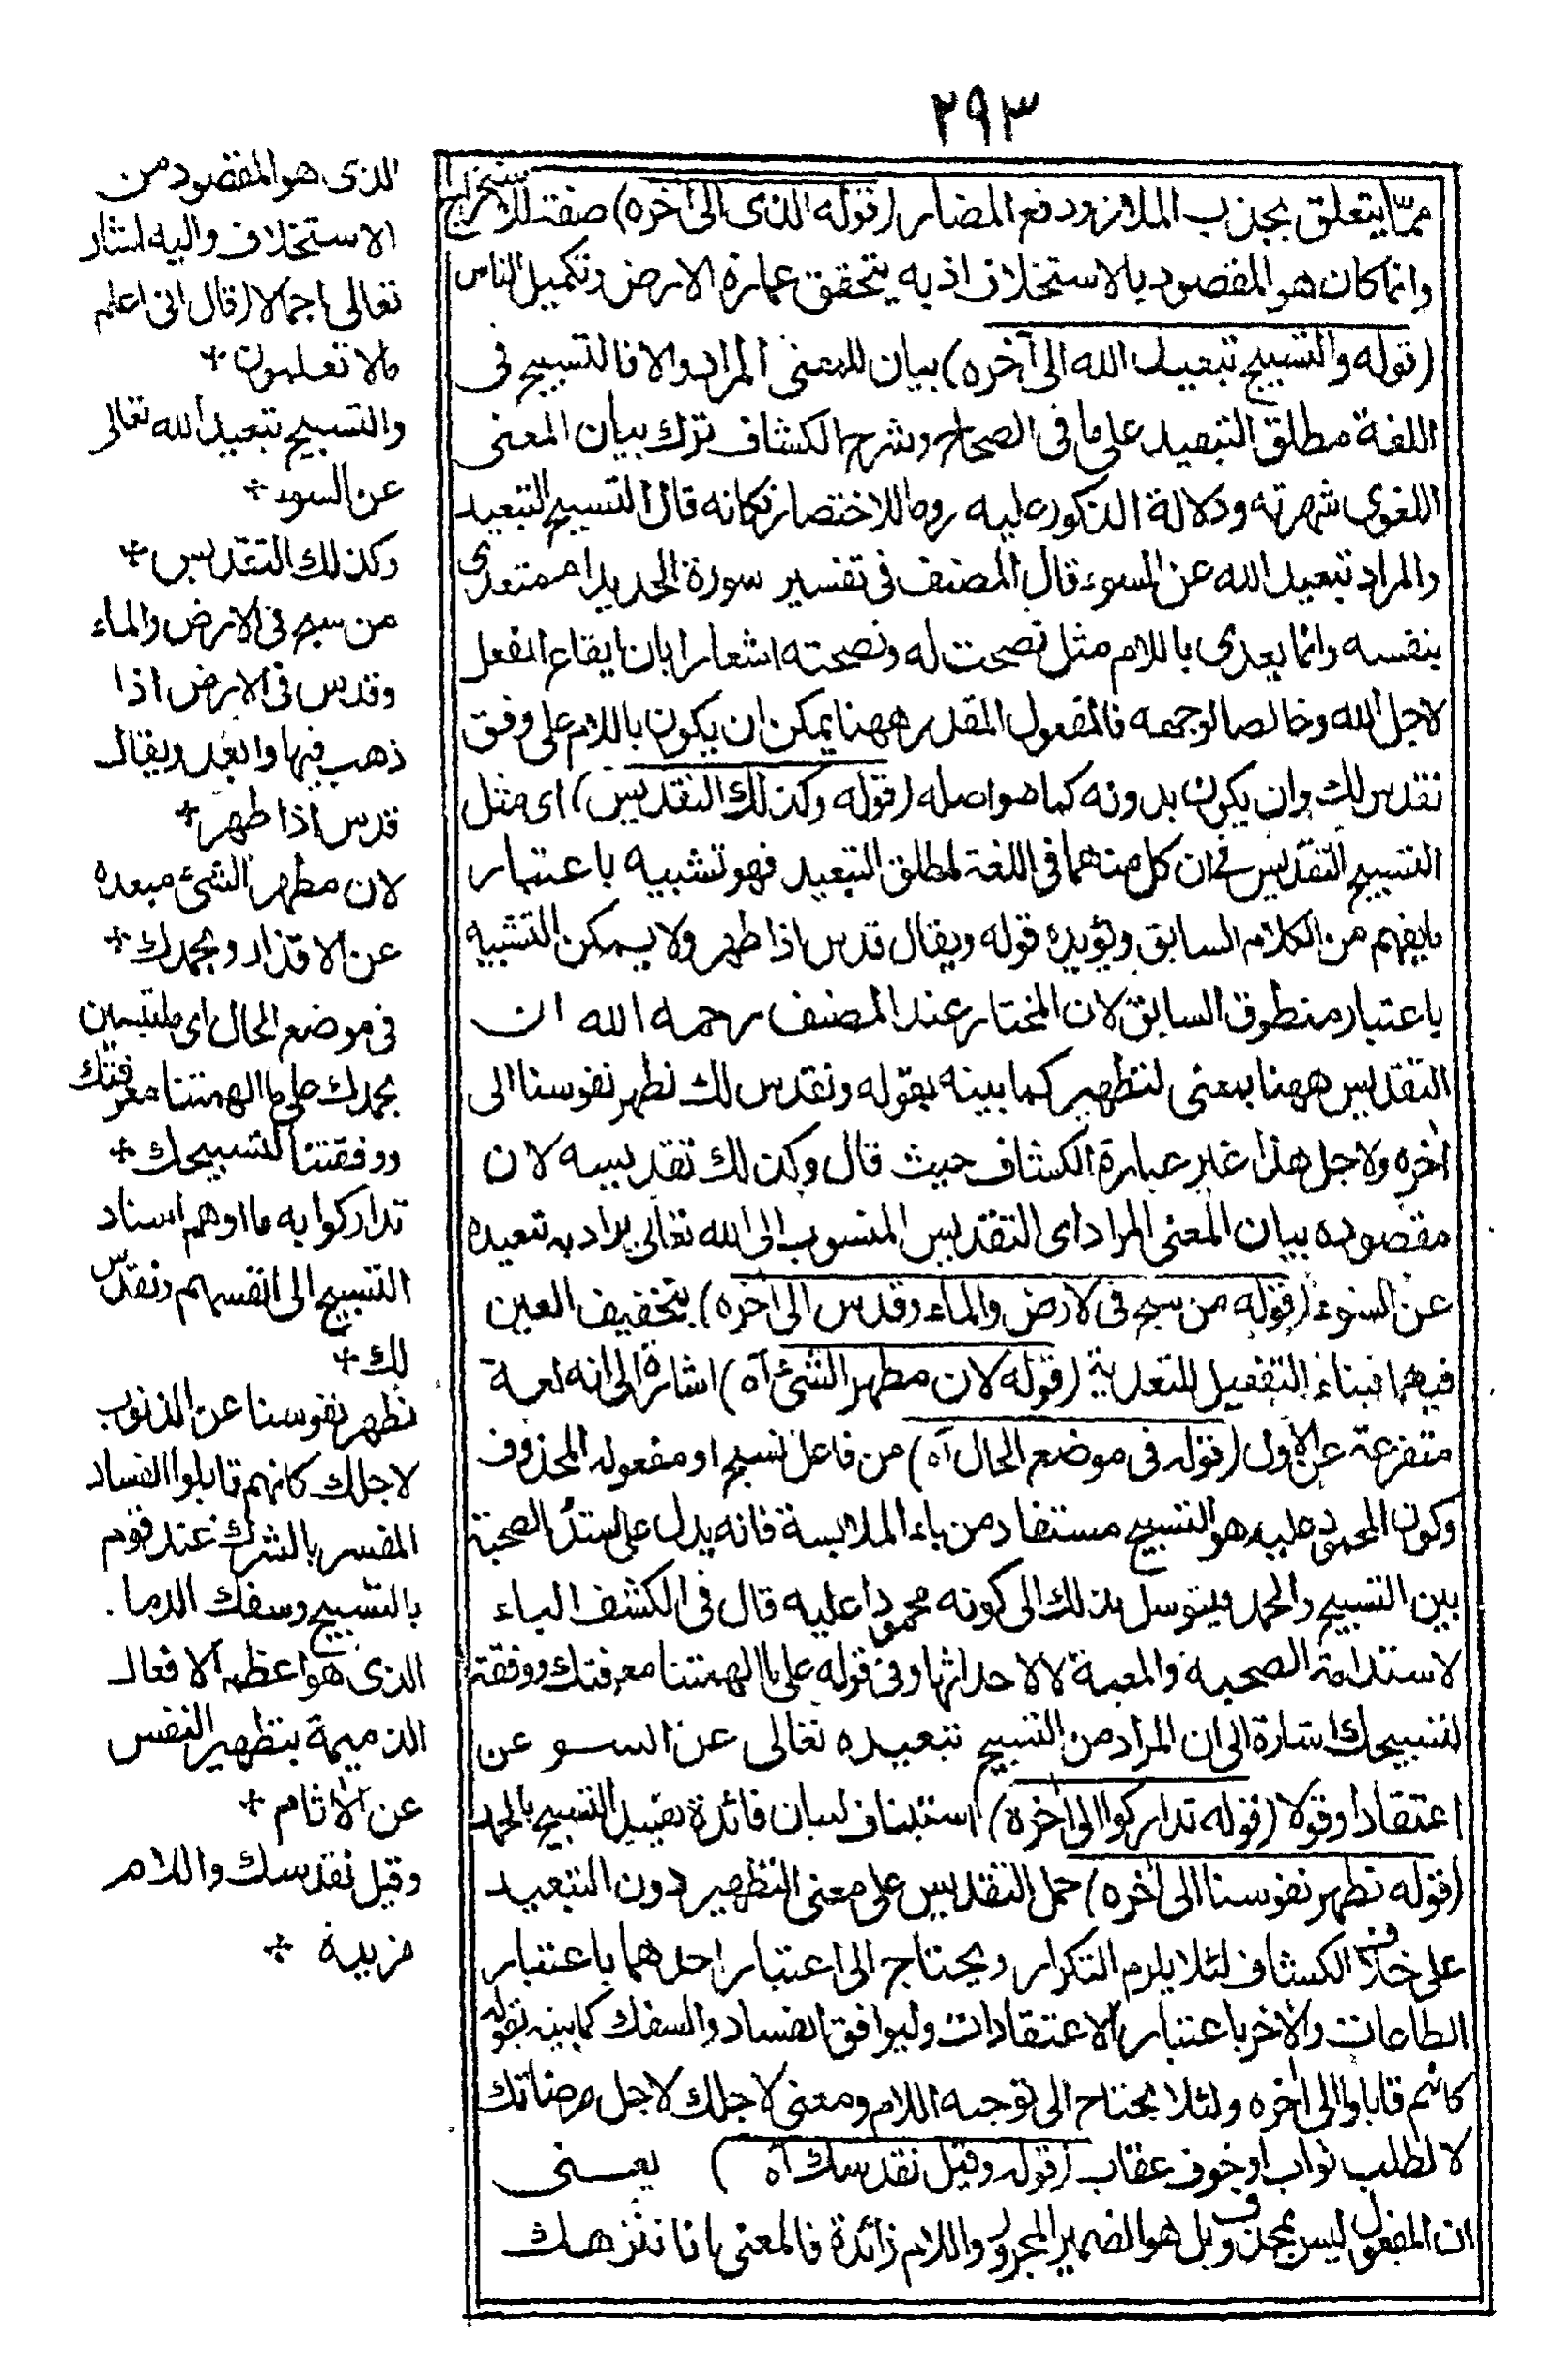 ٢٩٣
ممّا يتعلق بجذب الملاذ ودفع المضار (قوله الذى الى آخره) صفة للاستخراج
وانما كان هو المقصود بالاستخلاف اذ به يتحقق عمارة الارض وتكميل الناس
(قوله والتسبيح تبعيد الله الى آخره) بيان للمعنى المراد والا فالتسبيح فى
اللغة مطلق التبعيد على ما فى الصحاح وشرح الكشاف ترك بيان المعنى
اللغوى شهرته ودلالة المذكور عليه روما للاختصار فكانه قال التسبيح التبعيد
والمراد تبعيد الله عن السوء قال المصنف فى تفسير سورة الحديد امر متعدى
بنفسه وانما يعدى باللام مثل نصحت له ونصحته اشعارا بان ايقاع الفعل
لاجل الله وخالصا لوجهه فالمفعول المقدر ههنا يمكن ان يكون باللام على وفق
نقدس لك وان يكون بدونه كما هو اصله (قوله وكذلك التقديس) اى مثل
التسبيح التقديس فى ان كل منهما فى اللغة لمطلق التبعيد فهو تشبيه باعتبار
ما يفهم من الكلام السابق ويؤيده قوله ويقال قدس اذا طهر ولا يمكن التشبيه
باعتبار منطوق السابق لان المختار عند المصنف رحمه الله ان
التقديس ههنا بمعنى لتطهير كما بينه بقوله ونقدس لك نطهر نفوسنا الى
آخره ولاجل هذا غير عبارة الكشاف حيث قال وكذلك تقديسه لان
مقصوده بيان المعنى المراد اى التقديس المنسوب الى الله تعالى يراد به تبعيده
عن السوء (قوله من سبح فى لارض والماء وقدس الى آخره) بتخفيف العين
فيهما فبناء التفعيل للتعدية (قوله لان مطهر الشئ آه) اشارة الى انه لعة
متفرعة عن الاول (قوله فى موضع الحال آه) من فاعل نسبح او مفعوله المحذوف
وكون المحمود عليه هو التسبيح مستفاد من باء الملابسة فانه يدل على استدامة الصحبة
بين التسبيح والحمد ويتوسل بذلك الى كونه محمودا عليه قال فى الكشف الباء
لاستدامة الصحبة والمعية لا لاحداثها وفى قوله على ما الهمتنا معرفتك ووفقتنا
لتسبيحك اشارة الى ان المراد من التسبيح تبعيده تعالى عن السو عن
اعتقادا وقولا (قوله تداركوا الى آخره) استيناف لبيان فائدة تقييد التسبيح بالحمد
(قوله نطهر نفوسنا الى آخره) حمل التقديس على معنى التطهير دون التبعيد
على خلاف الكشاف لئلا يلزم التكرار ويحتاج الى اعتبار احدهما باعتبار
الطاعات والآخر باعتبار الاعتقادات وليوافق الفساد والسفك كما بينه بقوله
كانهم قابلوا الى آخره ولئلا يحتاج الى توجيه اللام ومعنى لاجلك لاجل مرضاتك
لا لطلب ثواب او خوف عقاب (قوله وقيل نقدسك آه) يعنى
ان المفعول ليس بمحذوف بل هو الضمير المجرور واللام زائدة فالمعنى بانا ننزهك
الذى هو المقصود من
الاستخلاف واليه اشار
تعالى اجمالا (قال انى اعلم
مالا تعلمون +
والتسبيح تبعيد الله تعالى
عن السوء +
وكذلك التقديس +
من سبح فى الارض والماء
وقدس فى الارض اذا
ذهب فيها وابعد ويقال
قدس اذا طهر +
لان مطهر الشئ مبعده
عن الاقذار وبحمدك +
فى موضع الحال اى ملتبسين
بحمدك على ما الهمتنا معرفتك
ووفقتنا لتسبيحك +
تداركوا به ما اوهم اسناد
التسبيح الى انفسهم ونقدس
لك +
نطهر نفوسنا عن الذنوب
لاجلك كانهم قابلوا الفساد
المفسر بالشرك عند قوم
بالتسبيح وسفك الدما
الذى هو اعظم الافعال
الذميمة بتطهير النفس
عن الآثام +
وقيل نقدسك واللام
مزيدة +